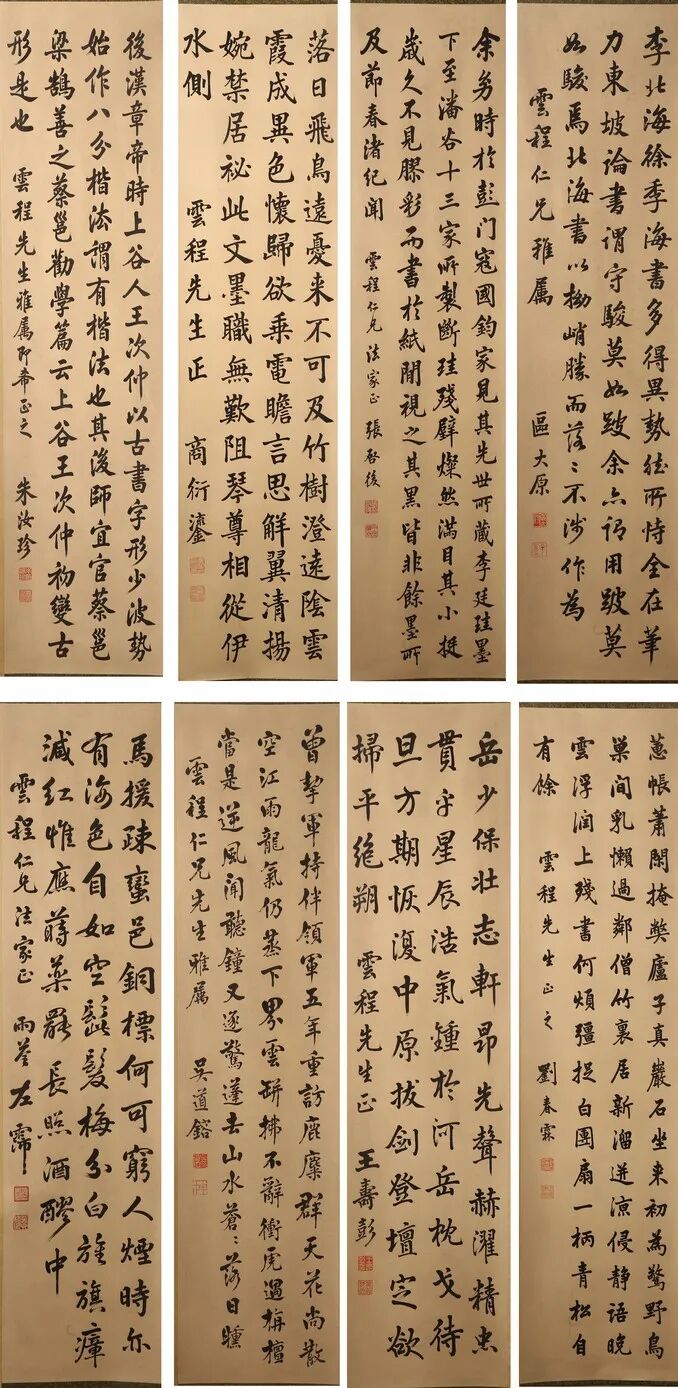 李北海徐季海書多得異勢然所恃全在筆
力東坡論書謂守駿莫如跛余亦謂用跛莫
如駿焉北海書以拗峭勝而落〻不涉作為
雲程仁兄雅屬 區大原
余幼時於彭门寇國鈞家見其先世所藏李廷珪墨
下至潘谷十三家所製斷珪殘璧燦然滿目其小挺
歲久不見膠彩而書於紙間視之其黑皆非餘墨所
及節春渚紀聞 雲程仁兄法家正 張啓後
落日飛鳥遠憂来不可及竹樹澄遠陰雲
霞成異色懷歸欲乘電瞻言思解翼清揚
婉禁居祕此文墨職無歎阻琴尊相從伊
水側 雲程先生正 商衍鎏
後漢章帝時上谷人王次仲以古書字形少波勢
始作八分楷法謂有楷法也其後師宜官蔡邕
梁鵠善之蔡邕勸學篇云上谷王次仲初變古
形是也 雲程先生雅屬即希正之 朱汝珍
蕙帳蕭閑掩弊廬子真巖石坐来初為驚野鳥
巢間乳懶過鄰僧竹裏居新溜迸凉侵静語晚
雲浮润上殘書何煩彊捉白團扇一柄青松自
有餘 雲程先生正之 劉春霖
岳少保壮志軒昂先聲赫濯精忠
貫乎星辰浩氣鍾於河岳枕戈待
旦方期恢復中原拔剑登壇定欲
掃平絶朔 雲程先生正 王壽彭
曾挈軍持伴領軍五年重訪鹿麋群天花尚散
空江雨龍氣仍蒸下界雲缾拂不辭衝虎過栴檀
當是逆風聞聽鐘又逐驚蓬去山水蒼〻落日曛
雲程仁兄先生雅屬 吴道鎔
馬援疎蠻邑銅標何可窮人煙時亦
有海色自如空髭髮梅分白旌旗瘴
減紅惟應蒔藥罷長照酒醪中
雲程仁兄法家正 雨荃左霈